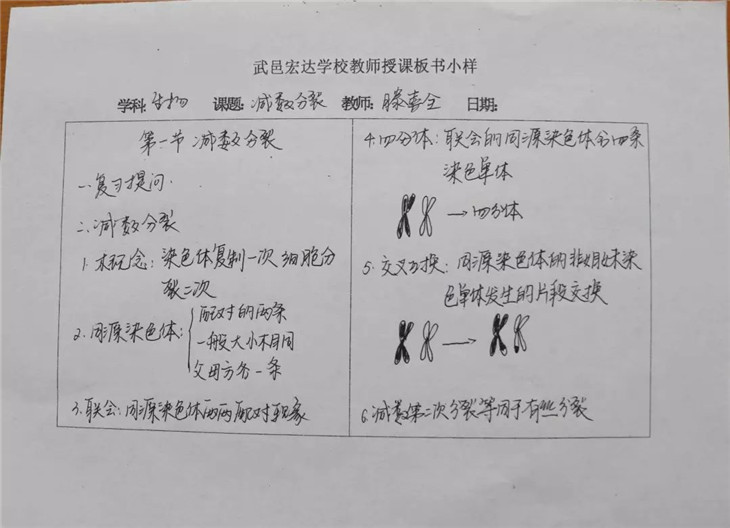 武邑宏达学校教师授课板书小样
学科:生物 课题:减数分裂 教师:滕喜全 日期:
第一节 减数分裂
一.复习提问.
二.减数分裂
1.概念:染色体复制一次 细胞分
裂二次
2.同源染色体:
配对的两条
一般大小相同
父母方各一条
3.联会:同源染色体两两配对现象
4.四分体:联会的同源染色体含四条
染色单体
→四分体
5.交叉互换:同源染色体的非姐妹染
色单体发生的片段交换
→
6.减数第二次分裂等同于有丝分裂